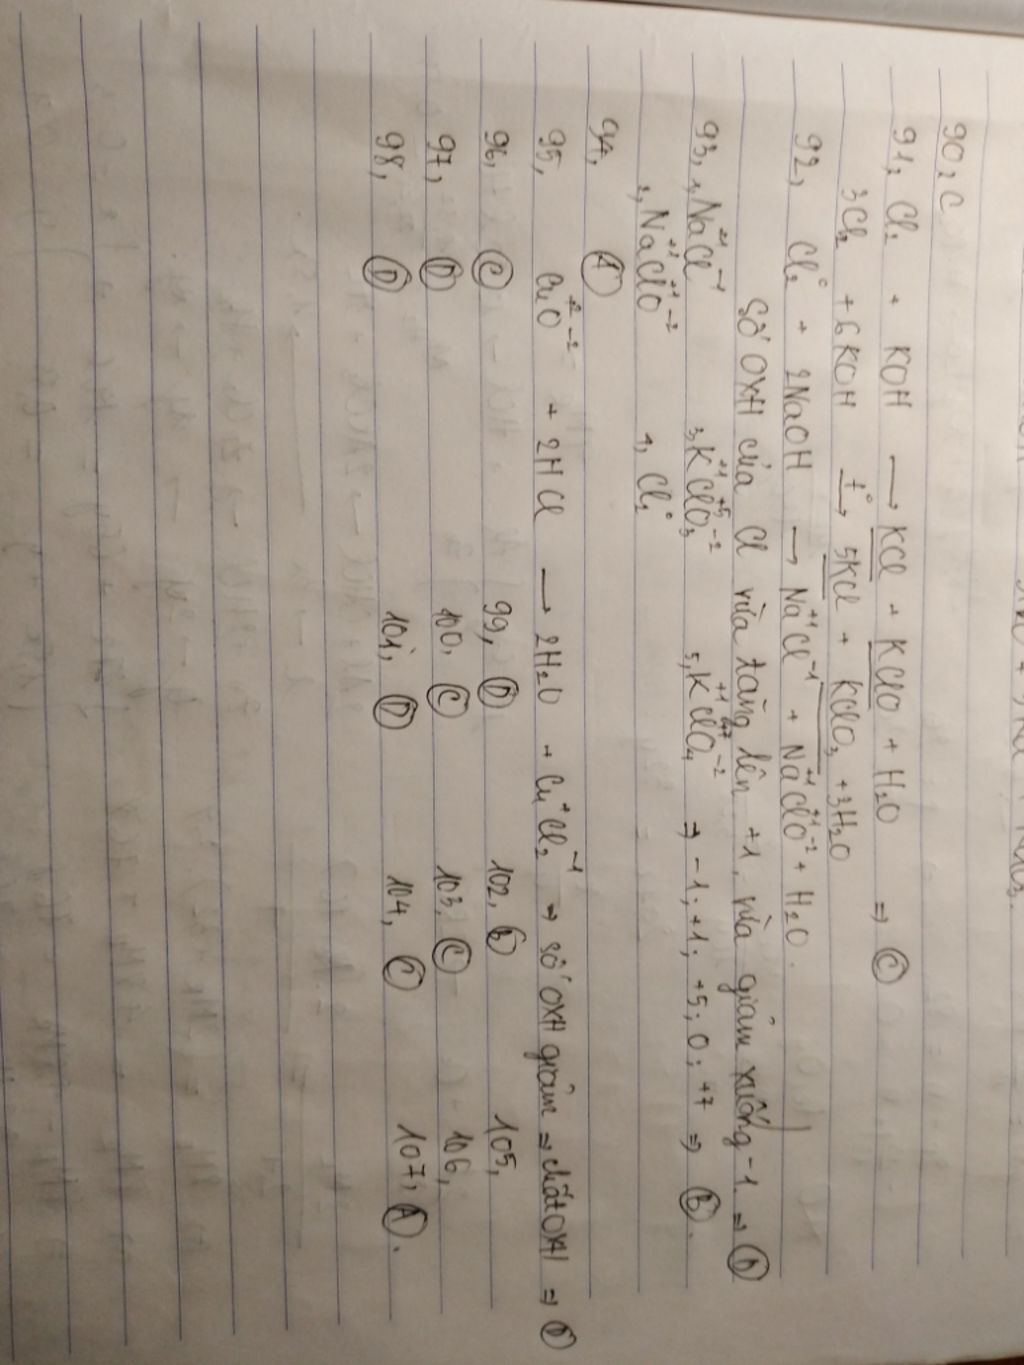 90, C
91, Cl₂ + KOH → KCl + KClO + H₂O ⇒ Ⓒ
3Cl₂ + 6KOH →(t°) 5KCl + KClO₃ + 3H₂O
92, Cl₂⁰ + 2NaOH → Na⁺¹Cl⁻¹ + Na⁺¹Cl⁺¹O⁻² + H₂O.
Số OXH của Cl vừa tăng lên +1, vừa giảm xuống -1. ⇒ Ⓓ
93, 1, Na⁺¹Cl⁻¹ 3, K⁺¹Cl⁺⁵O₃⁻² 5, K⁺¹Cl⁺⁷O₄⁻² ⇒ -1; +1; +5; 0; +7 ⇒ Ⓑ.
2, Na⁺¹Cl⁺¹O⁻² 4, Cl₂⁰
94, Ⓐ
95, Cu⁺²O⁻² + 2HCl → 2H₂O + Cu⁺Cl₂⁻¹ ⇒ số OXH giảm ⇒ chất OXH ⇒ Ⓓ
96, Ⓒ 99, Ⓓ 102, Ⓑ 105,
97, Ⓓ 100, Ⓒ 103, Ⓒ 106,
98, Ⓓ 101, Ⓓ 104, Ⓒ 107, Ⓐ.